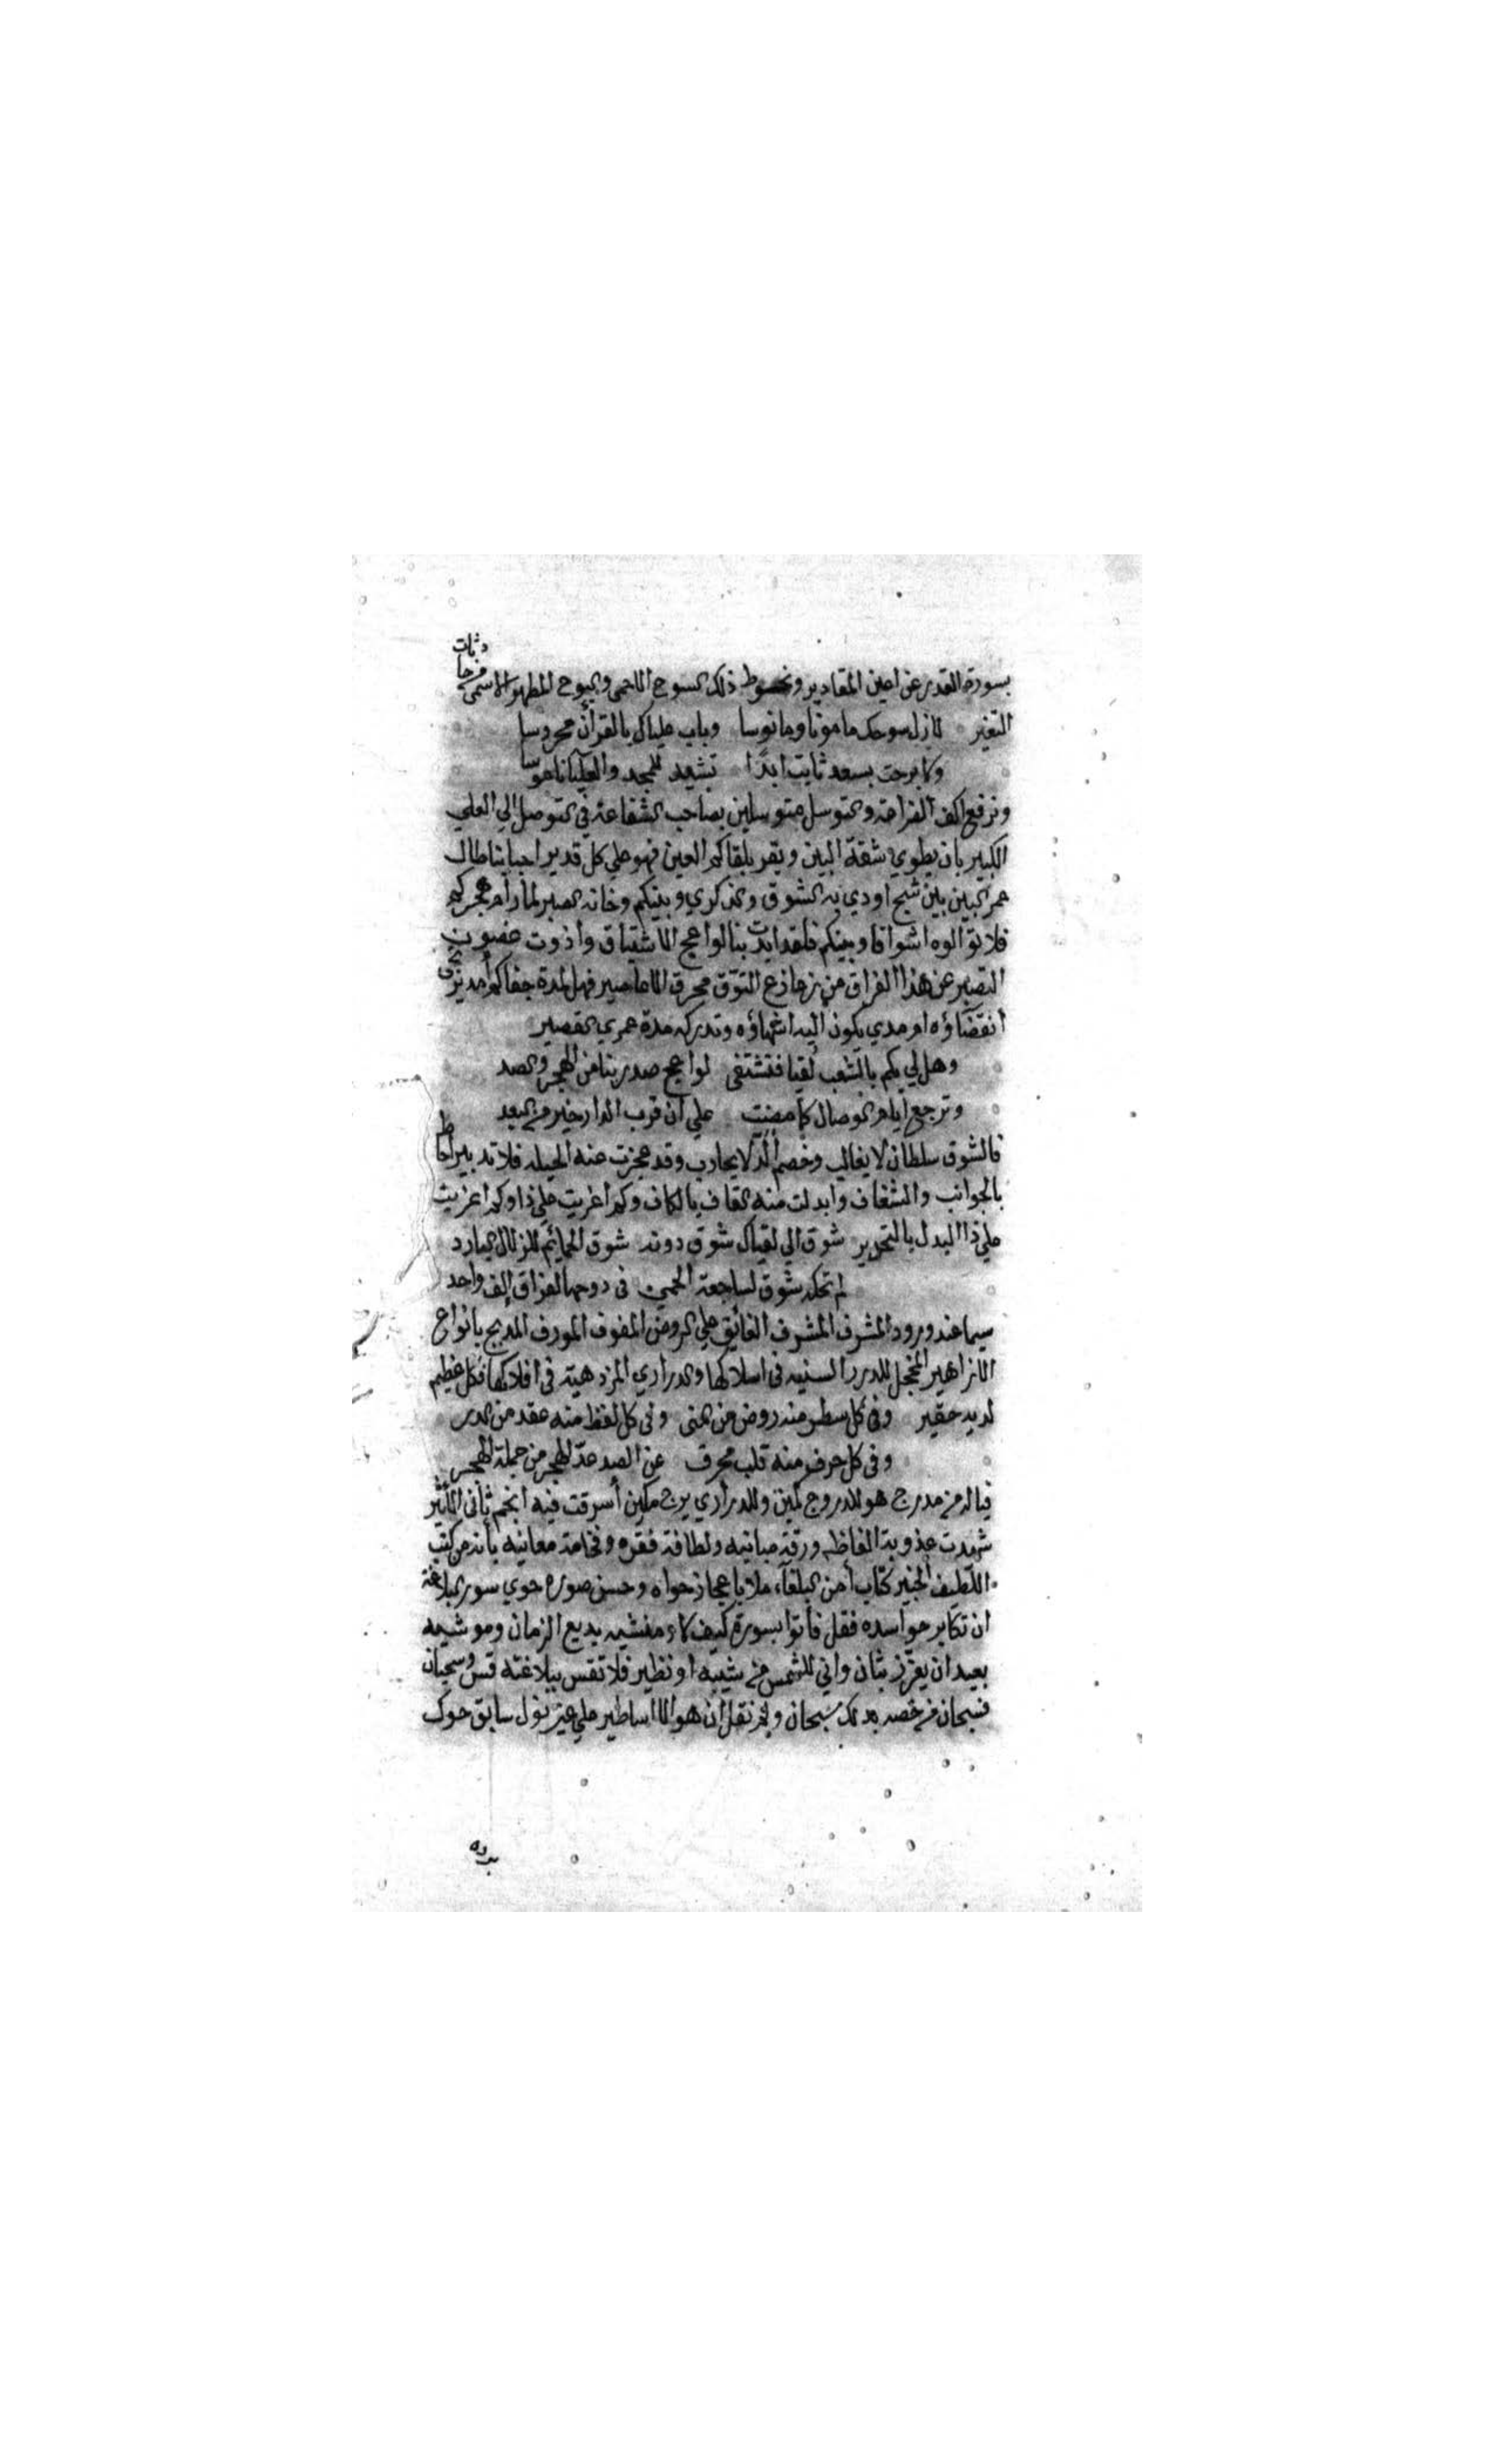 بسورة القدر عن اعين المقادير ونحوط ذلك السوح الاحمى والبوح المطهر الاسمى من حادثات
التغير لازال سوحك مامونا ومانوسا وباب علياك بالقرآن محروسا
وكما برحت بسعد ثابت ابدًا تشيد للمجد والعليآ ناموسا
ونرفع اكف الضراعة والتوسل متوسلين بصاحب الشفاعة في التوصل الي العلي
الكبير بان يطوي شقة البين ويقر بلقاكم العين فهو علي كل قدير احبابنا طال
عمر البين بين شبح اودي به الشوق والذكري وبينكم وخانه الصبر لما رام هجركم
فلا توالوه اشواقا وبينكم فلقد ابدت بنا لواعج الاشتياق وأذوت غصون
التصبر عن هذا الفراق من زعازع التوق محرق الاعاصير فهل لمدة جفاكم أمد يرجى
انقضآؤه ام مدي يكون اليه انتهاؤه وتدركه مدة عمري القصير
وهل لي بكم بالشعب لقيا فتشتفى لواعج صدر بنا من الهجر والصد
وترجع ايام الوصال كما مضت علي أن قرب الدار خير من البعد
فالشوق سلطان لا يغالب وخصم ألدّ لا يحارب وقد عجزت عنه الحيله فلا تدبير احاط
بالجوانب والشغاف وابدلت منه القاف بالكاف وكم أغريت علي ذا وكم اغريت
علي ذا البدل بالتحرير شوق الي لقياك شوق دونه شوق الحمائم للزلال البارد
لم تحكه شوق لساجعة الحمى في دوحها لفراق إلف واحد
سيما عند ورود المشرف المشرف الفائق علي الروض المفوف المورف المدبج بانواع
الازاهير المخجل للدرر السنيه في اسلاكها والدراري المزدهية في افلاكها فكل عظيم
لديه حقير وفي كل سطر منه روض من المنى وفي كل لفظ منه عقد من الدر
وفي كل حرف منه قلب محرق عن الصد عدّ الهجر من جملة الهجر
فياله من مدرج هو للدر درج ثمين وللدراري برج مكين أسرقت فيه انجم ثأنى التأثير
شهدت عذوبة الفاظه ورقة مبانيه ولطافة فقره وفخامة معانيه بأنه من كتب
اللطيف الخبير كتاب أمن البلغآء ملا باعجاز حواه وحسن صوره حوي سور البلاغة
ان تكابر حواسده فقل فأتوا بسورة كيف لا ومنشيه بديع الزمان وموشيه
بعيد ان يعزّز بثان واني للشمس من شبيه او نظير فلا تقس ببلاغته قس وسحبان
فسبحان من خصه بذلك سبحان ولم نقل أن هو الا اساطير علي غير نول سابق حوك
برده